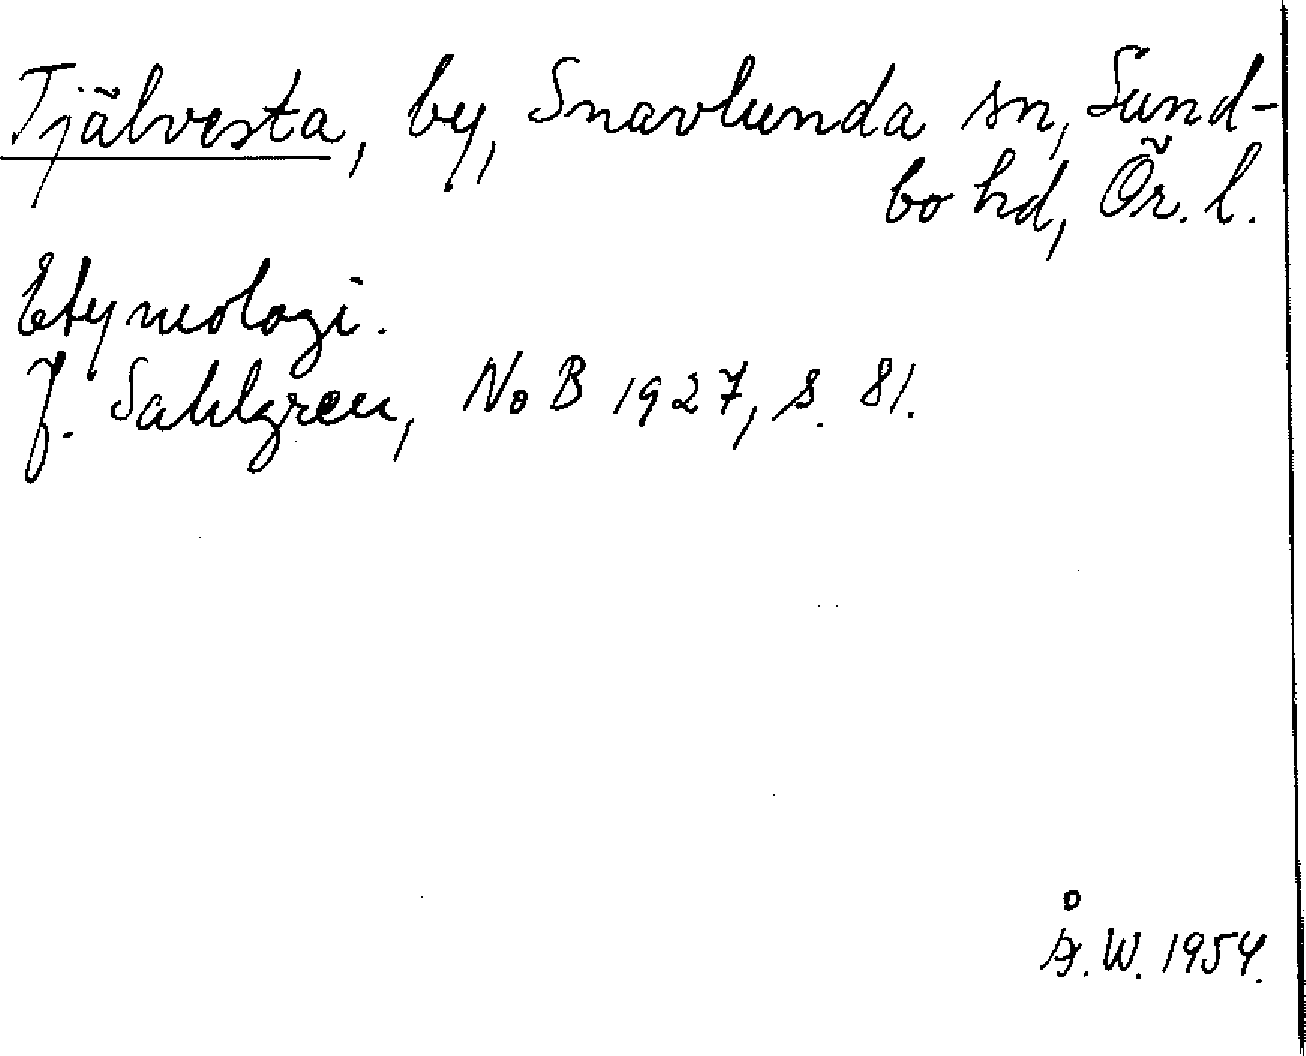 Tjälvesta, by, Snavlunda sn, Sund-
bo hd, Ör. l.
Etymologi.
J. Sahlgren, NoB 1927, s. 81.
Å.W. 1954.